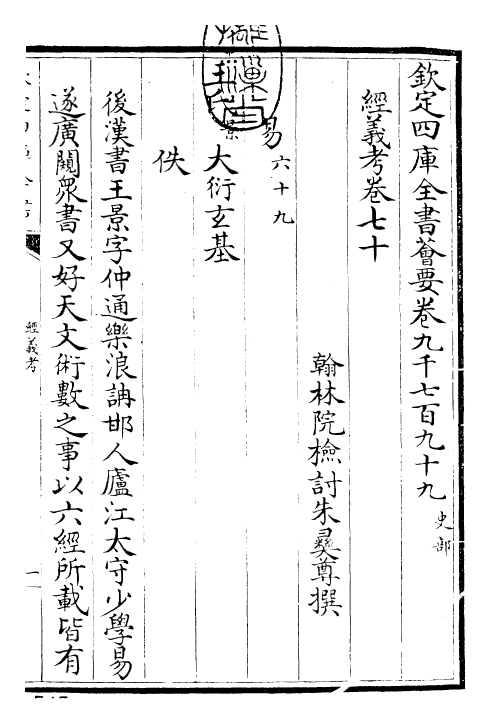 欽定四庫全書薈要卷九千七百九十九 史部
經義考卷七十
翰林院檢討朱彝尊撰
易六十九
王氏景大衍玄基
佚
後漢書王景字仲通樂浪䛁邯人廬江太守少學易
遂廣闚衆書又好天文術數之事以六經所載皆有
經義考
一